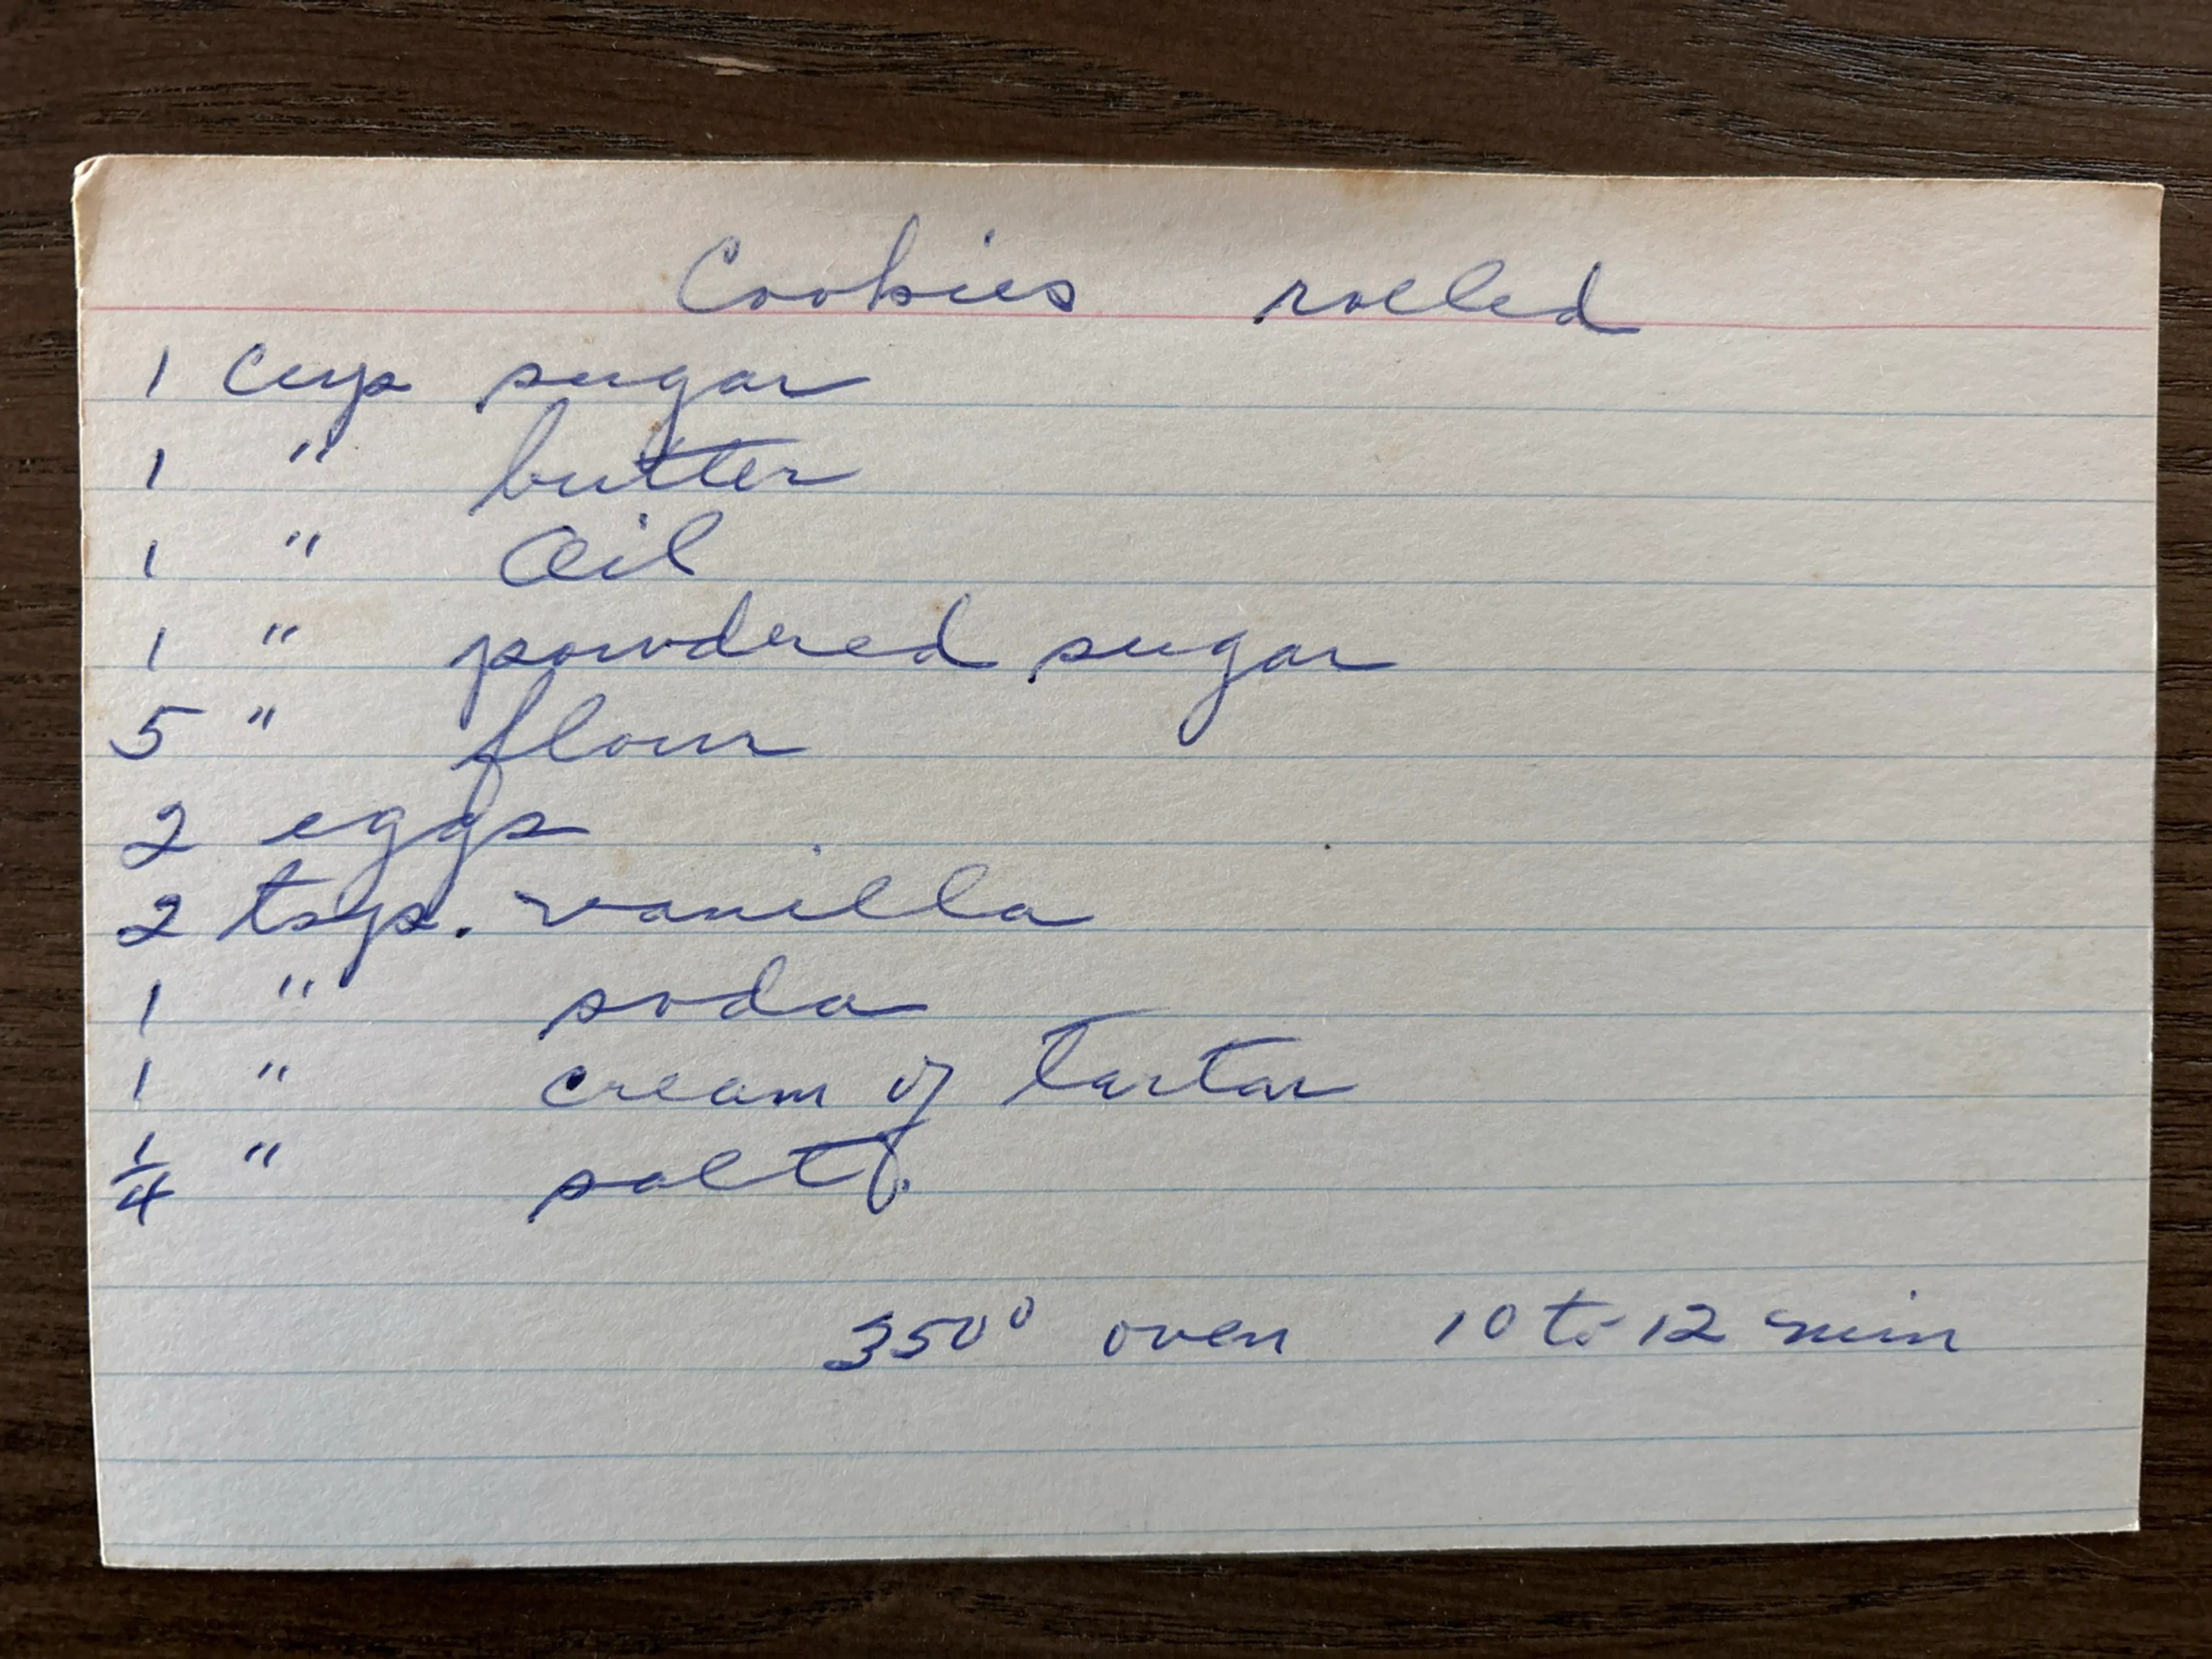 Cookies rolled
1 cup sugar
1 " butter
1 " Oil
1 " powdered sugar
5 " flour
2 eggs
2 tsps. vanilla
1 " soda
1 " cream of Tartar
1/4 " salt.
350° oven 10 to 12 min